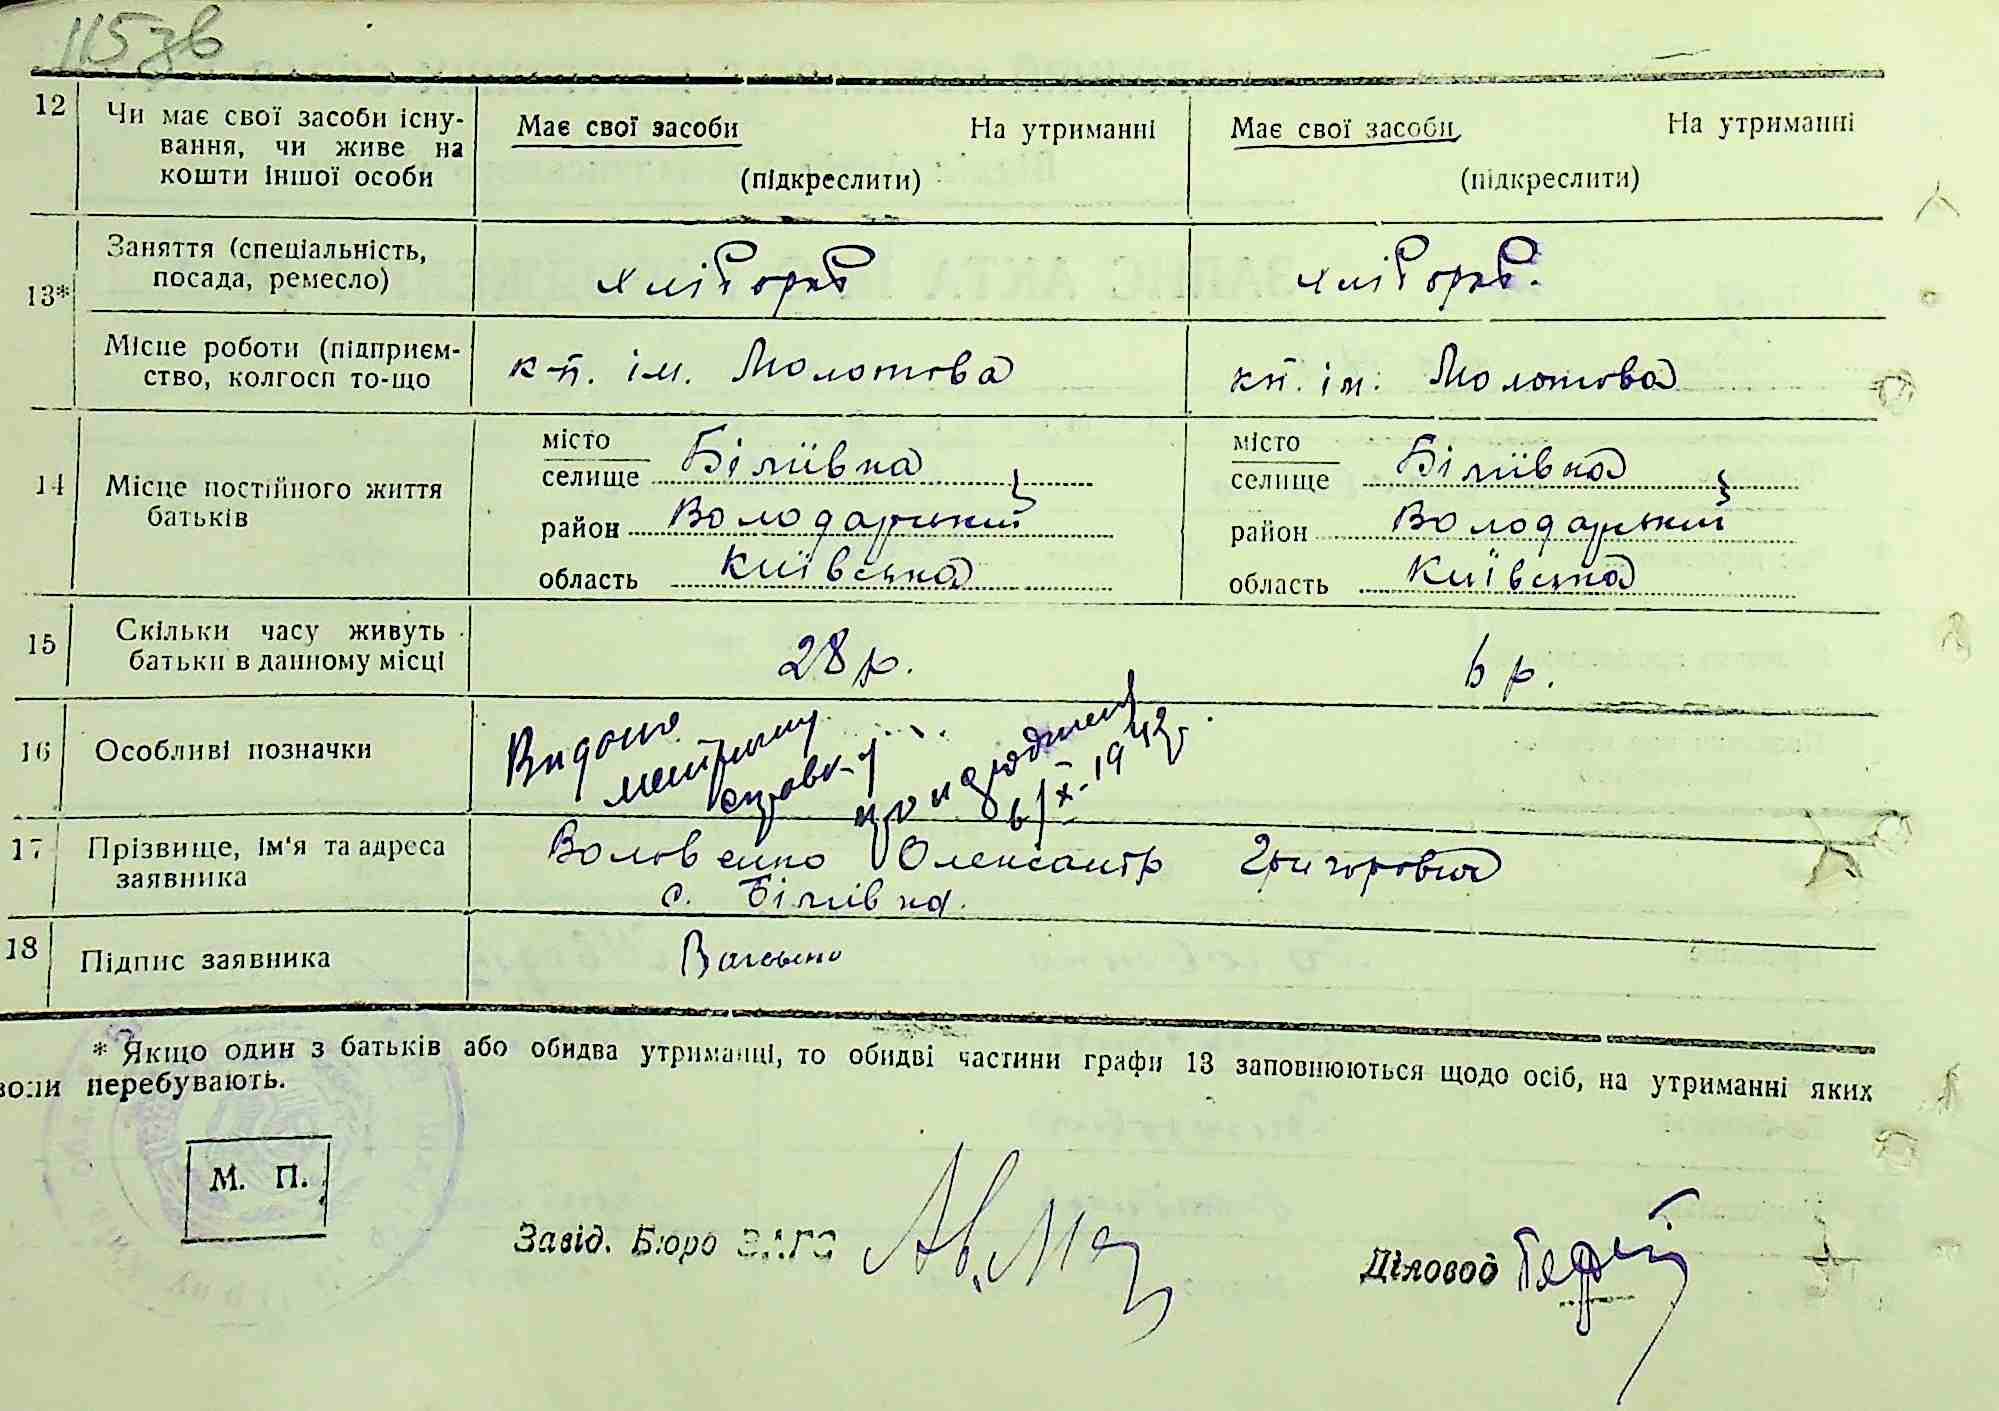 115зв
12 Чи має свої засоби існу-
вання, чи живе на
кошти іншої особи
Має свої засоби На утриманні
(підкреслити)
Має свої засоби На утриманні
(підкреслити)
13* Заняття (спеціальність,
посада, ремесло)
хлібороб
хлібороб.
Місце роботи (підприєм-
ство, колгосп то-що
к-п. ім. Молотова
кп. ім. Молотова
14 Місце постійного життя
батьків
місто
селище Біліївка
район Володарський
область Київська
місто
селище Біліївка
район Володарський
область Київська
15 Скільки часу живуть
батьки в данному місці
28 р.
6 р.
16 Особливі позначки
Видано
метричну
справку
про народження
6/X-1942р.
17 Прізвище, ім'я та адреса
заявника
Воловенко Олександр Григорович
с. Біліївка.
18 Підпис заявника
* Якщо один з батьків або обидва утриманці, то обидві частини графи 13 заповнюються щодо осіб, на утриманні яких
воли перебувають.
М. П.
Завід. Бюро ЗАГС
Діловод